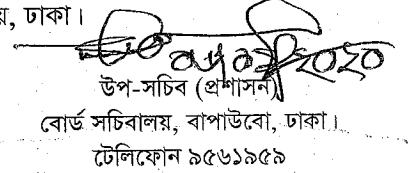 , ঢাকা।
উপ-সচিব (প্রশাসন)
বোর্ড সচিবালয়, বাপাউবো, ঢাকা।
টেলিফোন ৯৫৬১৯৫৯